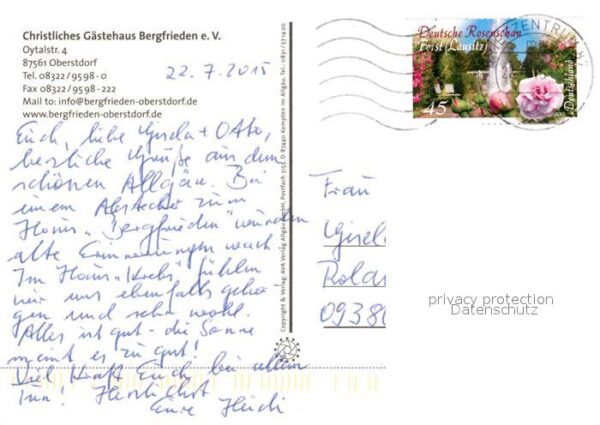 Christliches Gästehaus Bergfrieden e. V.
Oytalstr. 4
87561 Oberstdorf
Tel. 08322/9598-0
Fax 08322/9598-222
Mail to: info@bergfrieden-oberstdorf.de
www.bergfrieden-oberstdorf.de
22.7.2015
Euch, liebe Gisela + Otto,
herzliche Grüße aus dem
schönen Allgäu. Bei
einem Abstecher zum
Haus „Bergfrieden" wurden
alte Erinnerungen wach.
Im Haus „Krebs" fühlen
wir uns ebenfalls gebor-
gen und sehr wohl.
Alles ist gut - die Sonne
meint es zu gut!
Viel Kraft Euch bei allem
Tun! Herzlichst
Eure Heidi
Copyright & Verlag: AVA Verlag Allgäu GmbH, Postfach 3153, D-87440 Kempten im Allgäu, Tel.: 0831/571420
Deutsche Rosenschau
Forst (Lausitz)
45
Deutschland
ZENTRUM
Frau
Gisela
Rolan
0938
privacy protection
Datenschutz